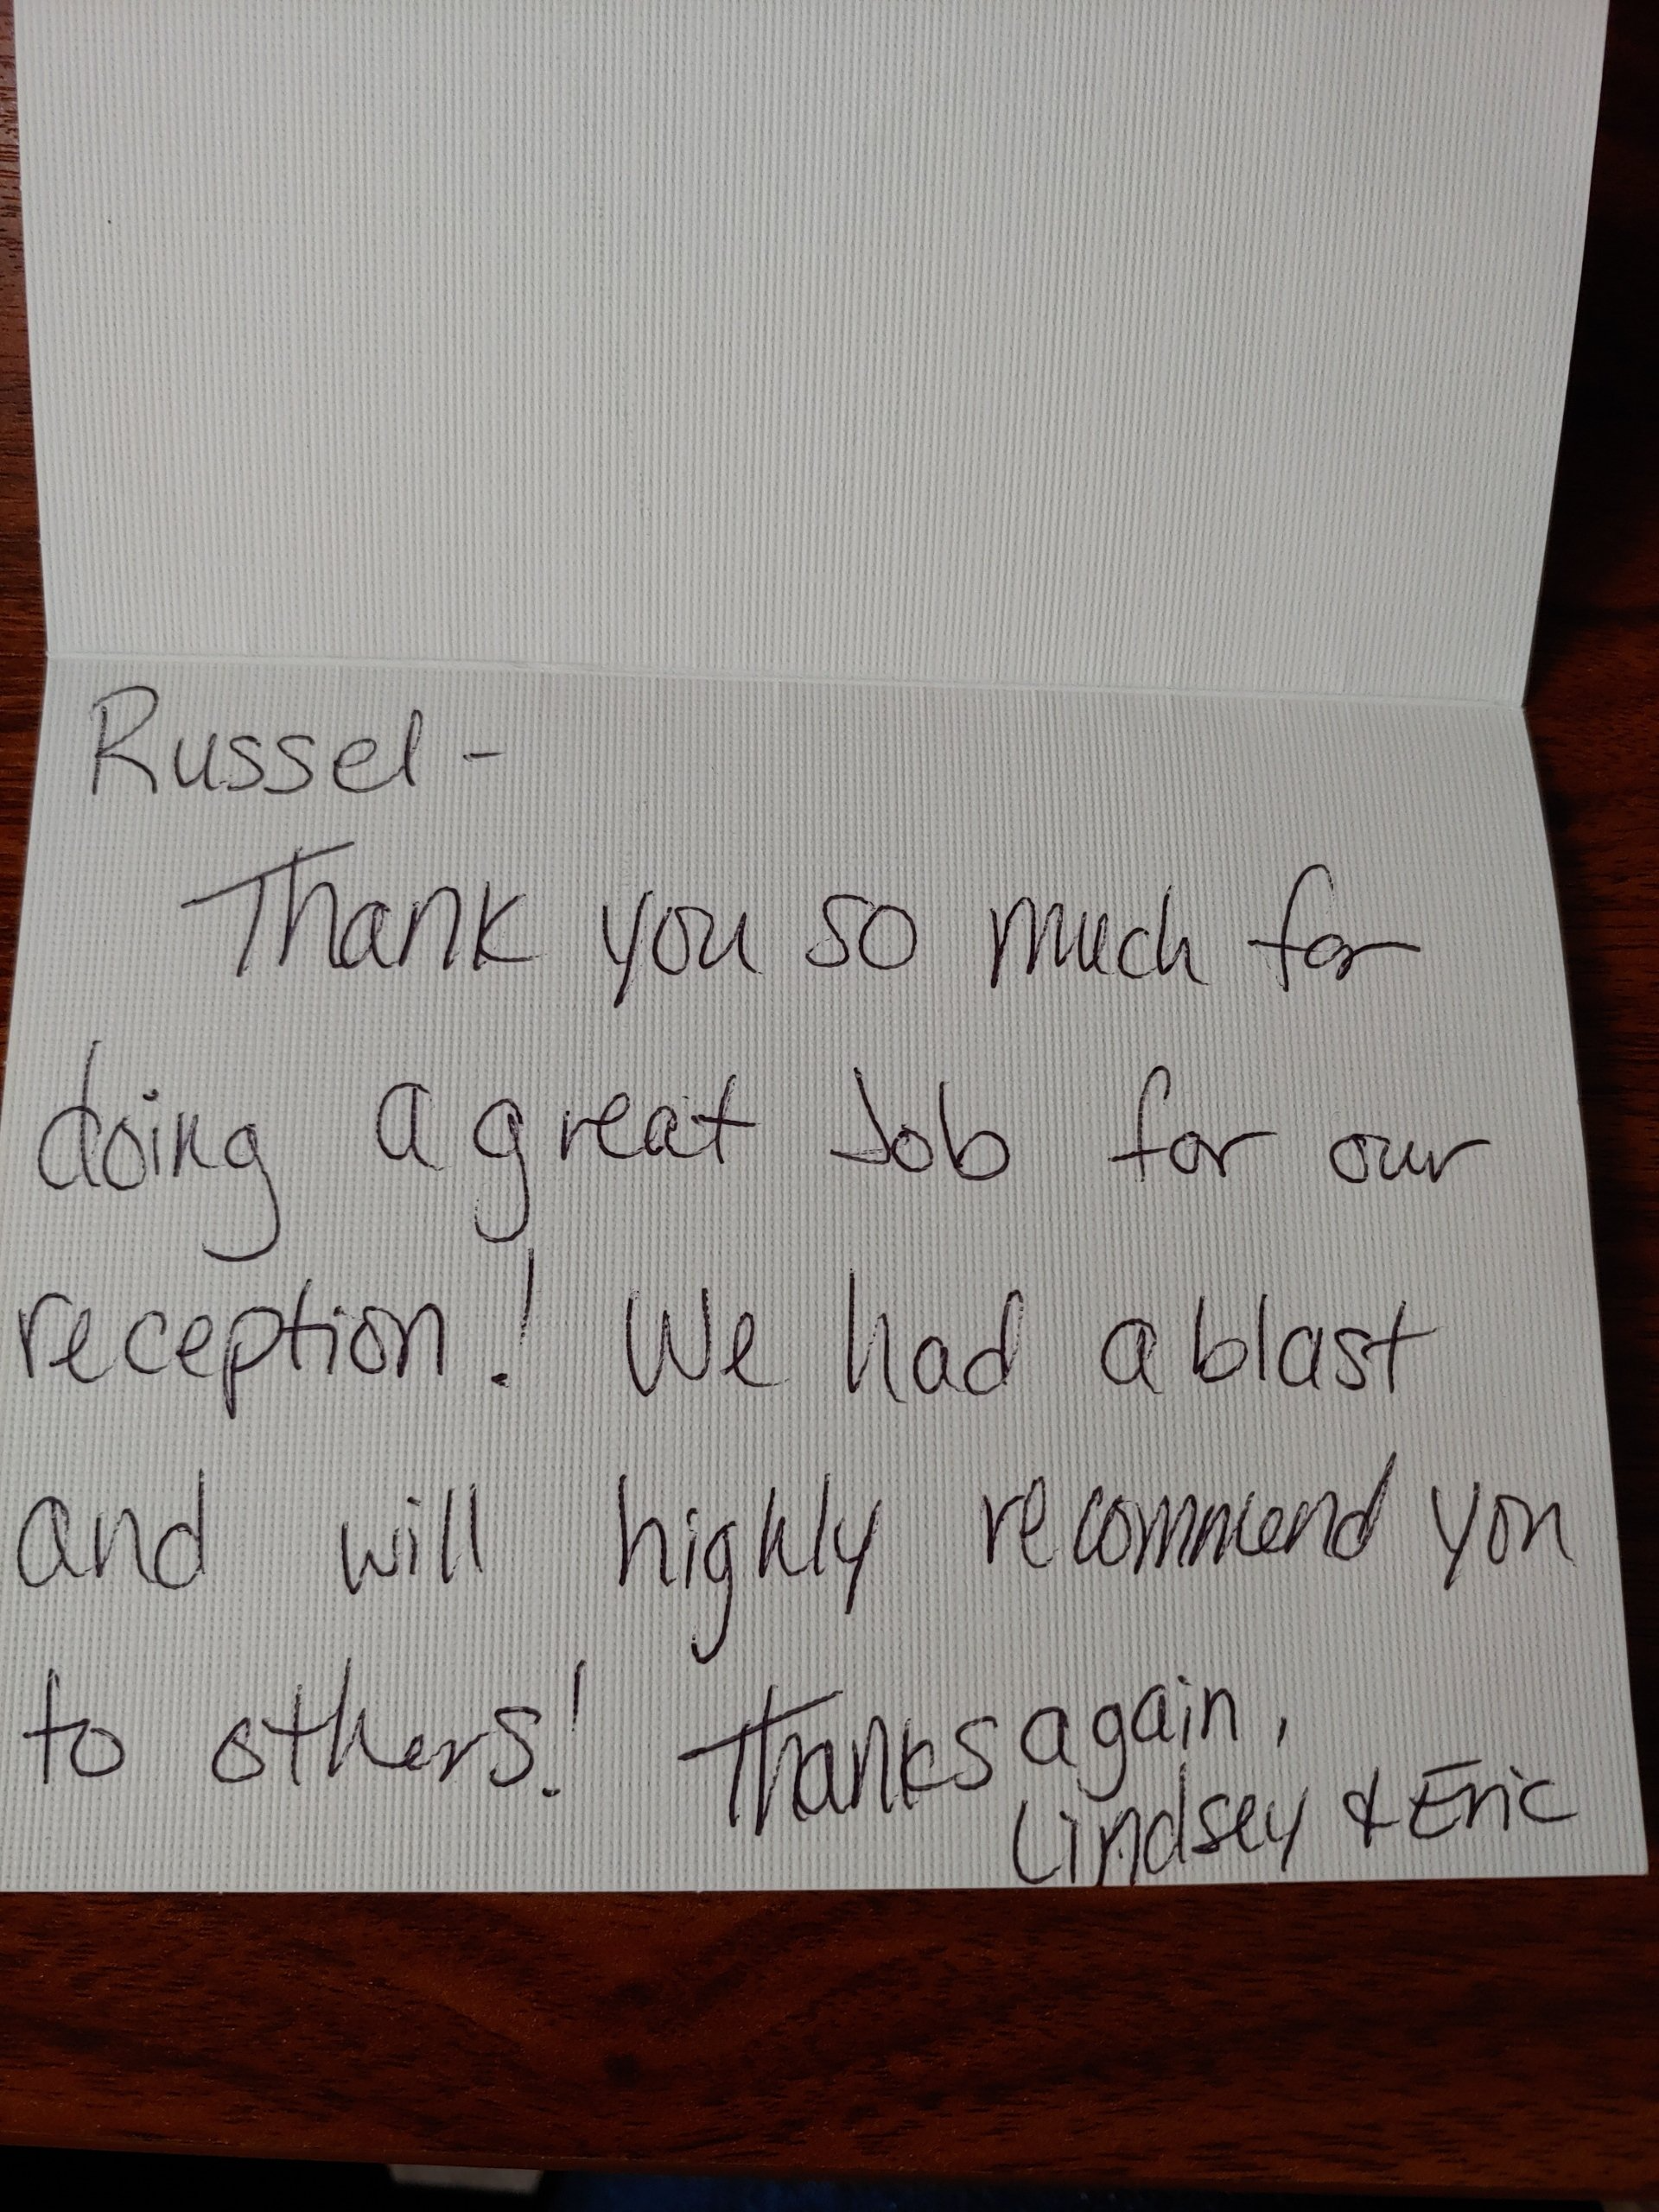 Russel -
Thank you so much for
doing a great Job for our
reception! We had a blast
and will highly recommend you
to others! Thanks again,
Lindsey & Eric